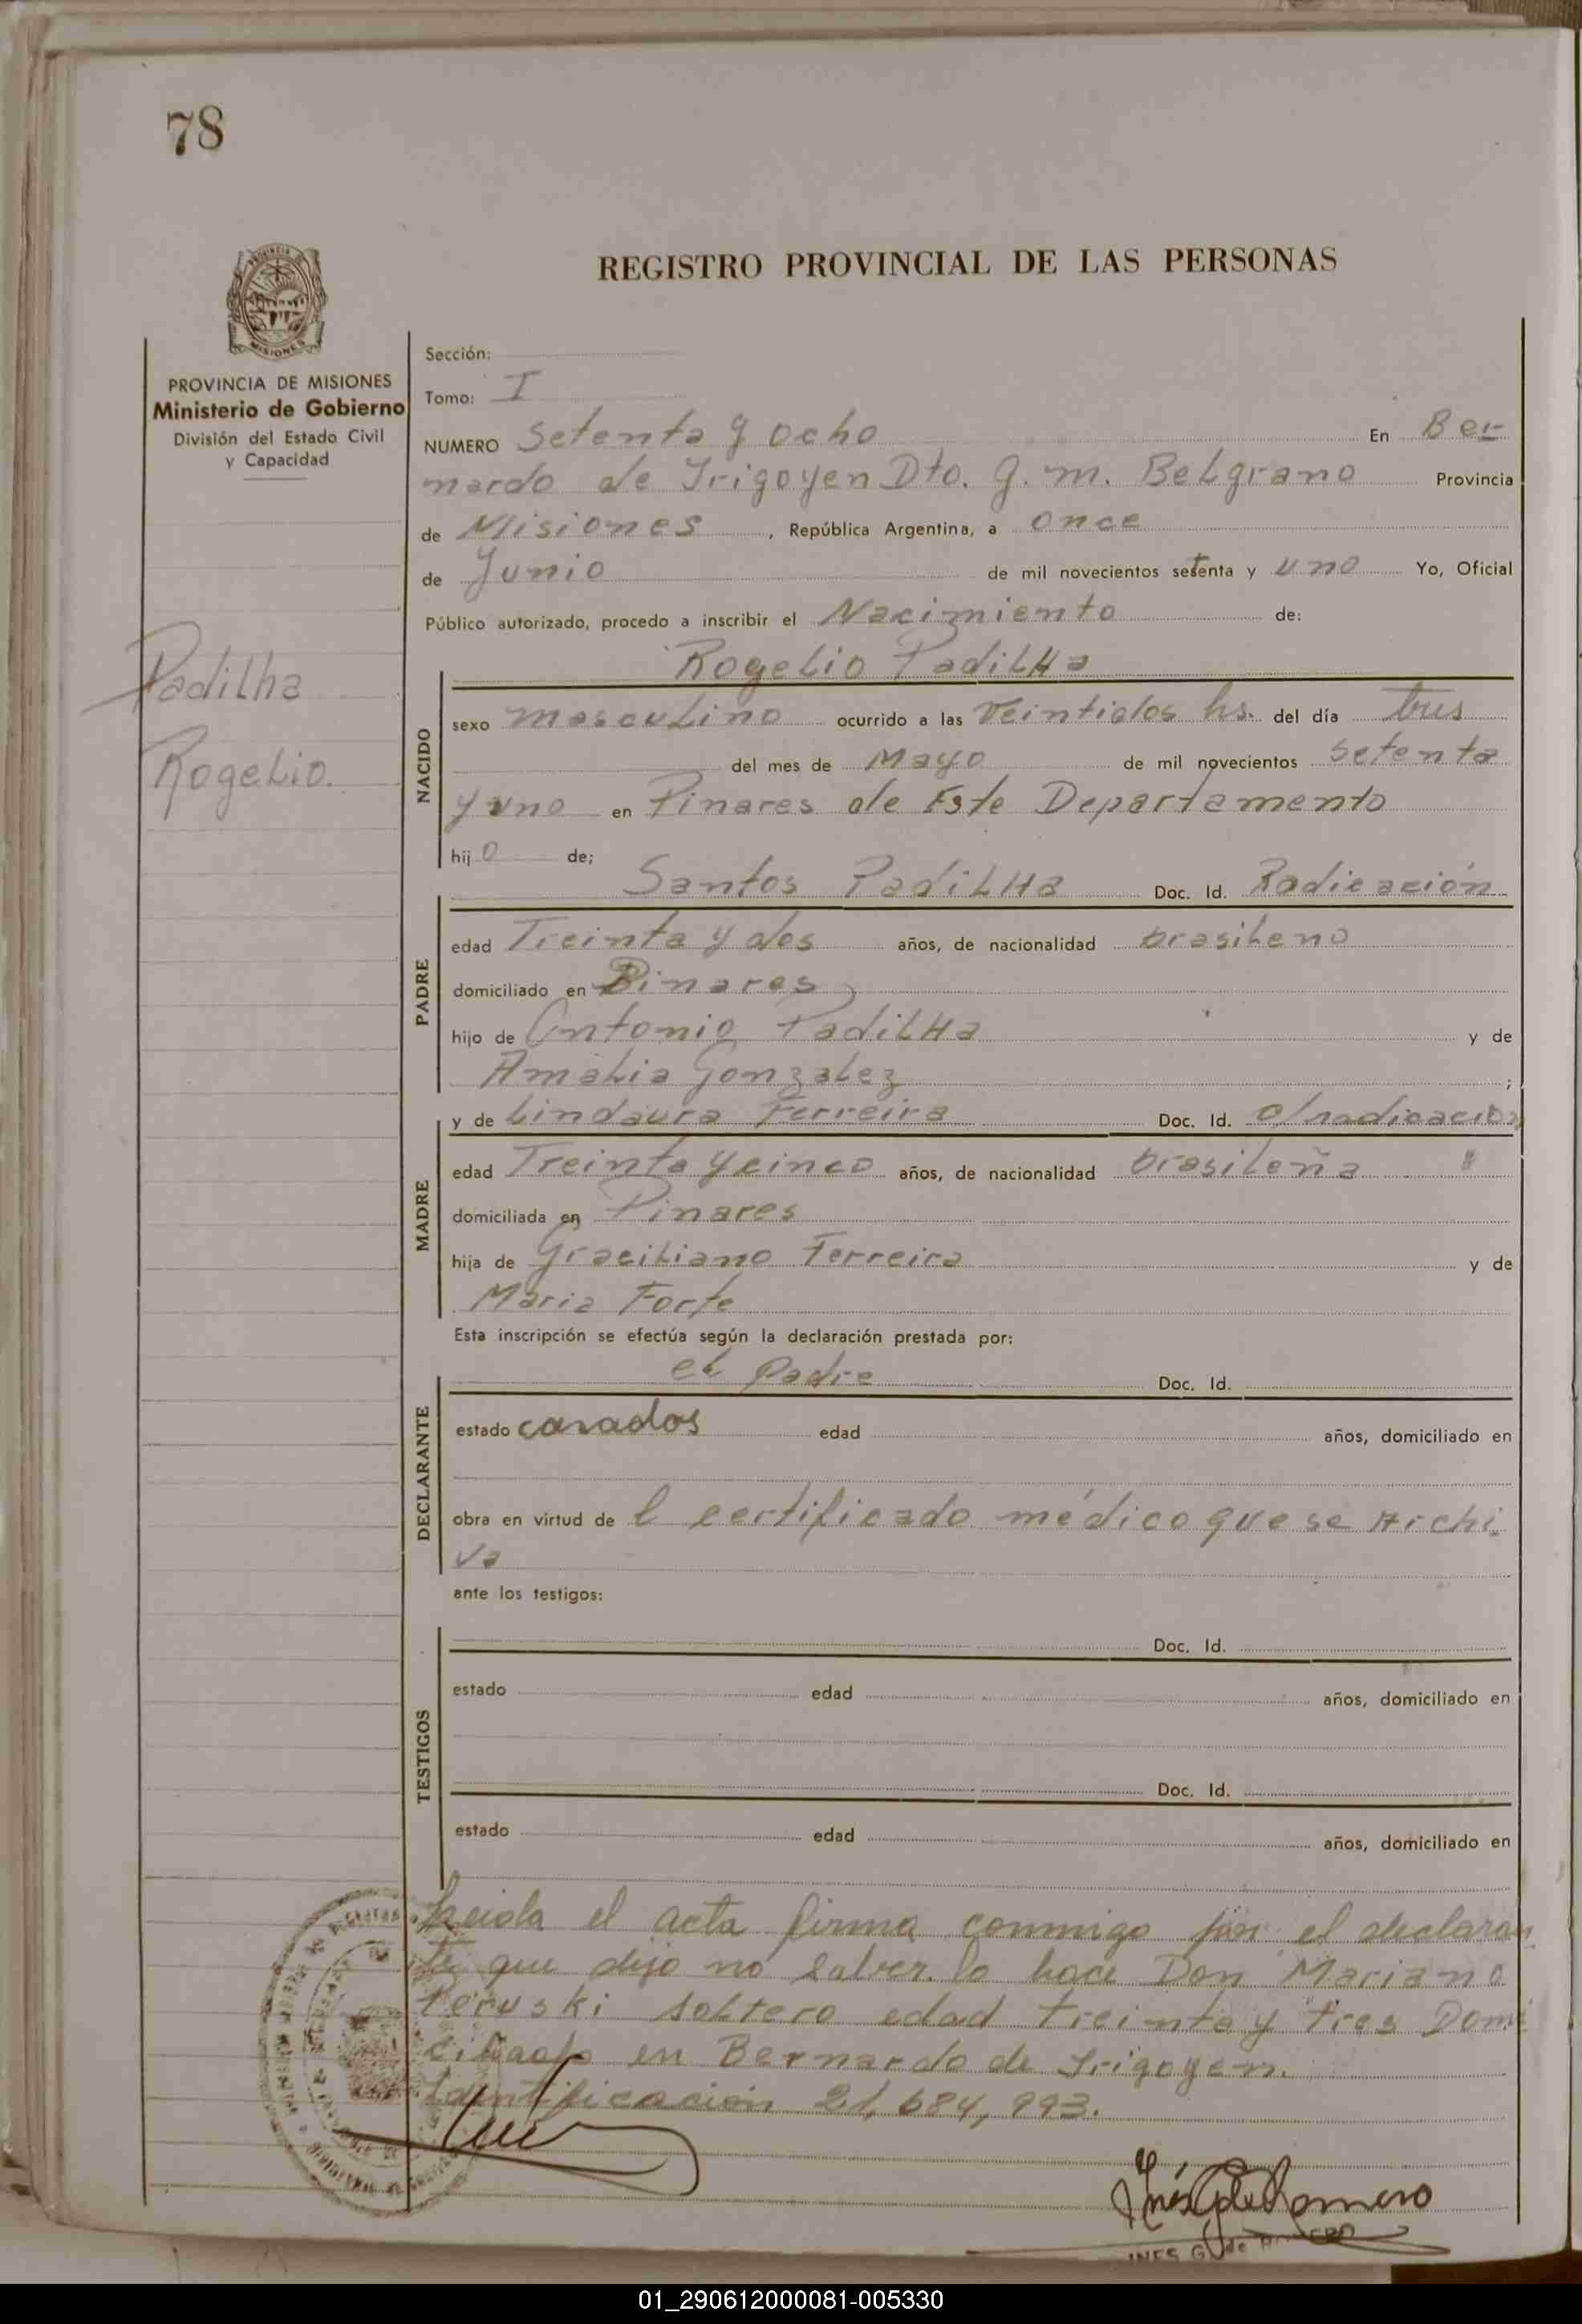 78
REGISTRO PROVINCIAL DE LAS PERSONAS
MISIONES
PROVINCIA DE MISIONES
Ministerio de Gobierno
División del Estado Civil
y Capacidad
Padilha
Rogelio.
Sección:
Tomo: I
NUMERO Setenta y ocho En Ber-
nardo de Irigoyen Dto. G. M. Belgrano Provincia
de Misiones, República Argentina, a once
de Junio de mil novecientos setenta y uno Yo, Oficial
Público autorizado, procedo a inscribir el Nacimiento de:
Rogelio Padilha
NACIDO
sexo masculino ocurrido a las Veintidos hs. del día tres
del mes de Mayo de mil novecientos setenta
y uno en Pinares de Este Departamento
hijo de;
Santos Padilha Doc. Id. Radicación
PADRE
edad Treinta y dos años, de nacionalidad brasileno
domiciliado en Pinares
hijo de Antonio Padilha y de
Amalia Gonzalez;
y de Lindaura Ferreira Doc. Id. c/radicación
MADRE
edad Treinta y cinco años, de nacionalidad brasileña
domiciliada en Pinares
hija de Graciliano Ferreira y de
Maria Forte
Esta inscripción se efectúa según la declaración prestada por:
el padre Doc. Id.
DECLARANTE
estado casados edad años, domiciliado en
obra en virtud de l certificado médico que se Archi
va
ante los testigos:
Doc. Id.
TESTIGOS
estado edad años, domiciliado en
Doc. Id.
estado edad años, domiciliado en
Leida el acta firma conmigo por el declaran
te que dijo no saber. lo hace Don Mariano
Peruski soltero edad treinta y tres Domi
ciliado en Bernardo de Irigoyen.
Identificación 21,684,993.
Inés G de Romero
INES G. de
01_290612000081-005330